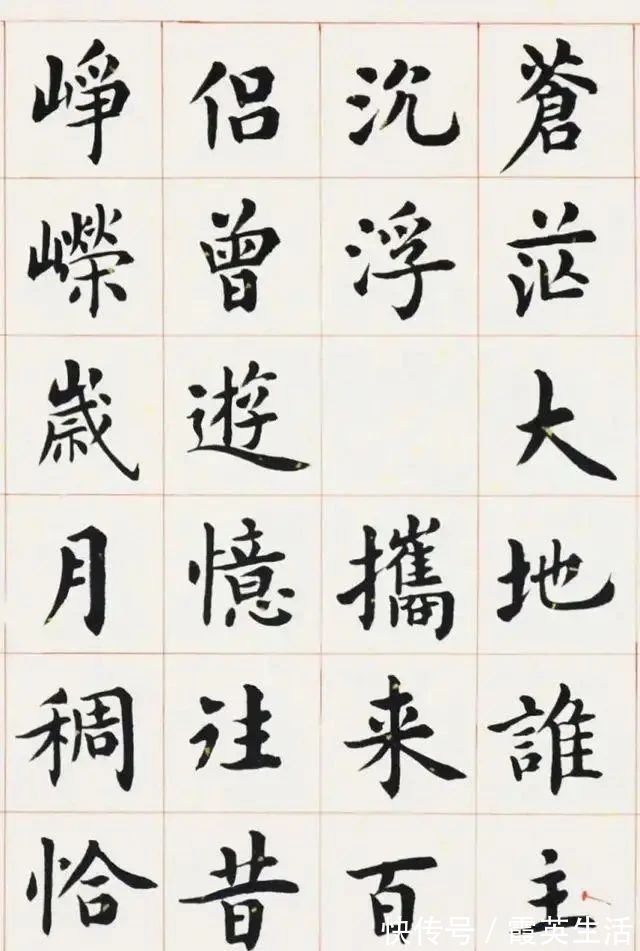 蒼茫大地誰主
沉浮 攜来百
侣曾遊憶往昔
崢嶸歲月稠恰
快传号 / 霞英生活